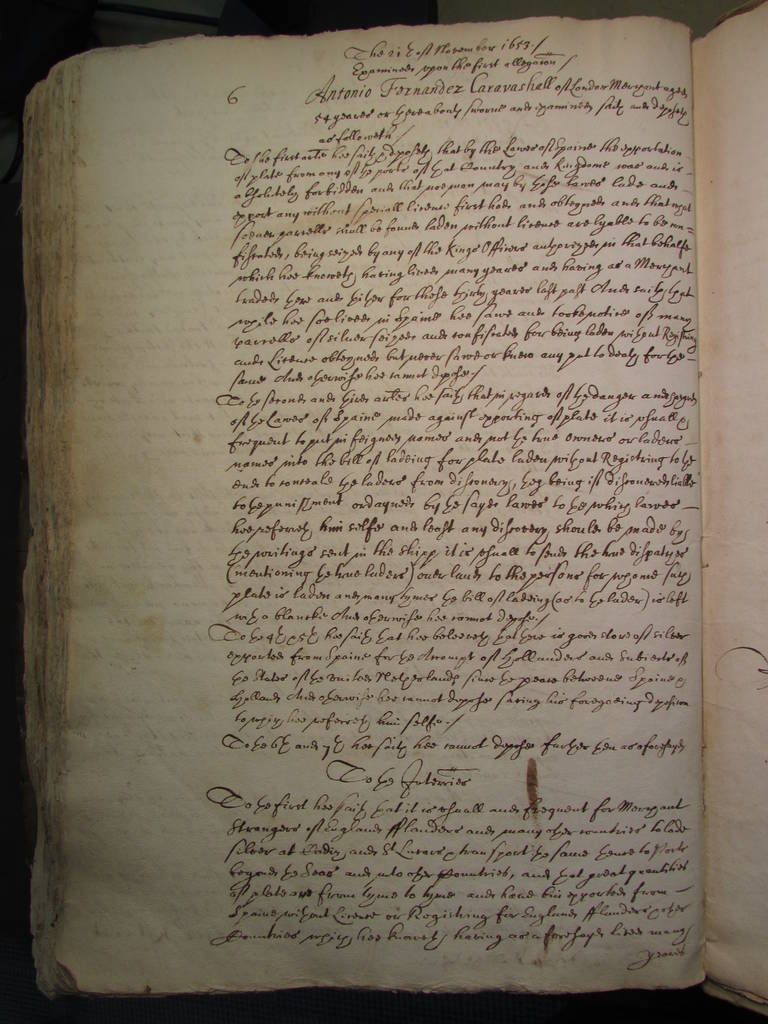 The 21th of November 1653./
Examined upon the first allegation /
6 Antonio Fernandez Caravashall of London Merchant aged
54 yeares or thereabouts sworne and examined saith and deposeth
as followeth
To the first arte hee saith and deposeth that by the Lawes of Spaine the exportation
of plate from any of the ports of that Countrey and Kingdome was and is
absolutely forbidden and that noe man may by those lawes lade and
export any without speciall licence first had and obteyned and that what
soever parcells shall be found laden without licence are lyable to be con=
fiscated, being seized by any of the Kings Officers authorized in that behalfe
which hee knoweth having lived many yeares and having as a Merchant
traded here and thither for these thirty yeares last past And saith that
while hee soe lived in Spaine hee sawe and tooke notice of many
parcells of silver seized and confiscated for being laden without Registring
and Licence obteyned but never sawe or knew any put to death for the
same And otherwise hee cannot depose./
To the second and third artes hee saith that in regard of the danger and
of the Lawes of Spaine made against exporting of plate it is usuall &
frequent to put in feigned names and not the true owners or laders
names into the bill of ladeing for plate laden without Registring to the
end to conceale the laders from discovery, they being if discovered lyable
to the punishment ordayned by the sayd lawes to the which lawes
hee referreth him selfe and least any discovery should be made by
the writings sent in the shipp it is usuall to send the true dispatches
(mentioning the true laders) over land to the persons for whome such
plate is laden and many tymes the bill of ladeing (as to the lader) is left
with a blancke And otherwise hee cannot depose./
To the 4th & 5th hee saith that hee beleeveth that there is good store of silver
exported from Spaine for the Accompt of Hollanders and Subiects of
the States of the United Netherlands since the peace betweene Spaine &
Holland And otherwise hee cannot depose saving his foregoeing deposition
to which hee referreth him selfe./
To the 6th and 7th hee saith hee cannot depose further then as aforesayd
To the Interries
To the first hee saith that it is usuall and frequent for Merchant
Strangers of England Flanders and many other countries to lade
silver at Cadiz and St Lucars & transport the same thence to Ports
beyond the Seas and into other Countries, and that great quantities
of plate are from tyme to tyme and have bin exported from
Spaine without Licence or Registring for England Flanders & other
Countries which hee knoweth having as aforesayd lived many
yeares